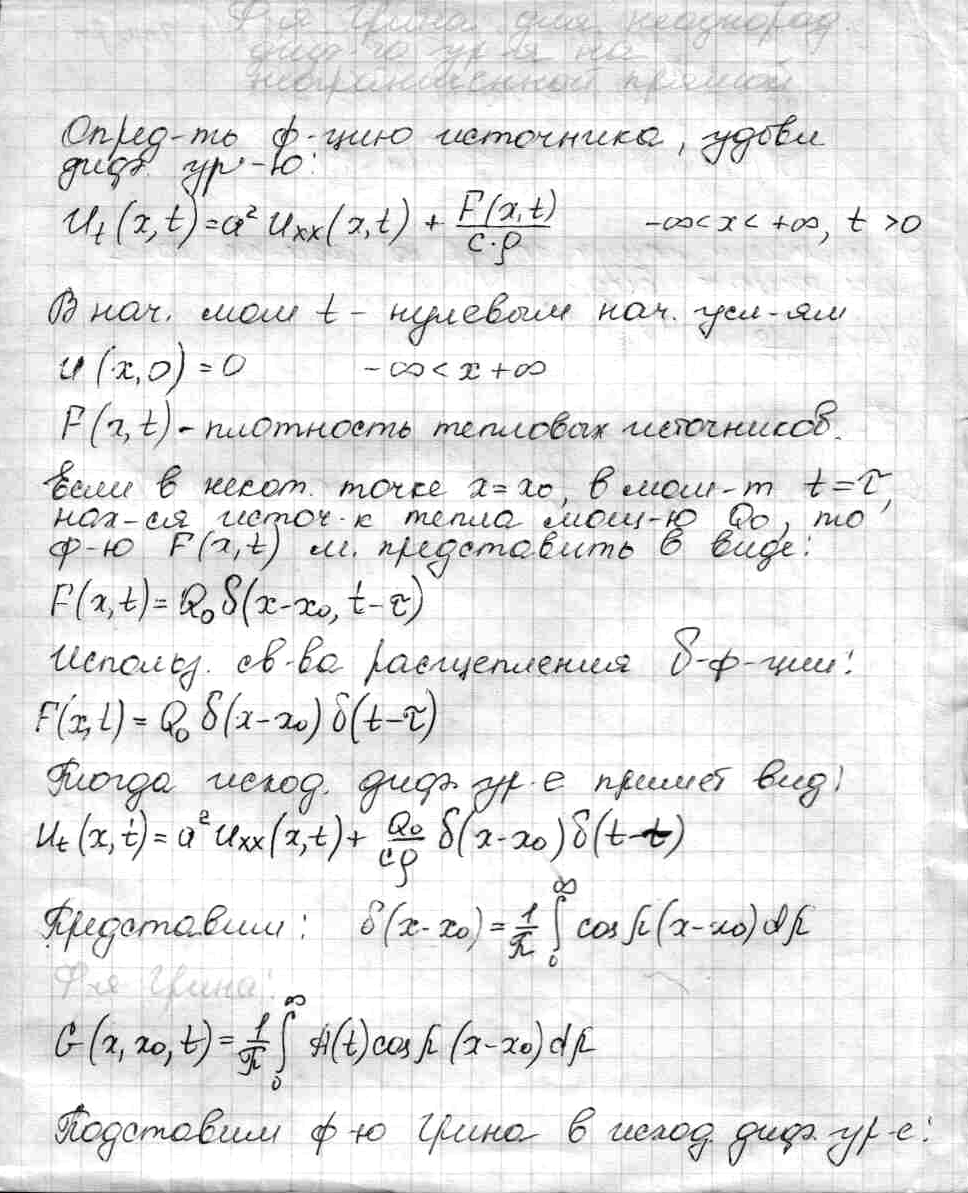 Ф-я Грина для неоднород.
диф-го ур-я на
неограниченной прямой
Опред-ть ф-цию источника, удовл
диф. ур-ю:
U_t(x,t)=a² U_xx(x,t) + F(x,t)/(c·ρ) -∞<x<+∞, t>0
В нач. мом t - нулевым нач. усл-ям
U(x,0)=0 -∞<x+∞
F(x,t)-плотность тепловых источников.
Если в некот. точке x=x₀, в мом-т t=τ,
нах-ся источ-к тепла мощ-ю Q₀, то
ф-ю F(x,t) м. представить в виде:
F(x,t)=Q₀δ(x-x₀, t-τ)
Использ. св-ва расщепления δ-ф-ции:
F(x,t)=Q₀ δ(x-x₀) δ(t-τ)
Тогда исход. диф. ур-е примет вид:
U_t(x,t)=a² U_xx(x,t)+ Q₀/(cρ) δ(x-x₀)δ(t-t)
Представим: δ(x-x₀)=1/π ∫₀^∞ cos λ(x-x₀)dλ
Ф-я Грина:
G(x,x₀,t)=1/π ∫₀^∞ A(t)cos λ(x-x₀)dλ
Подставим ф-ю Грина в исход. диф. ур-е: